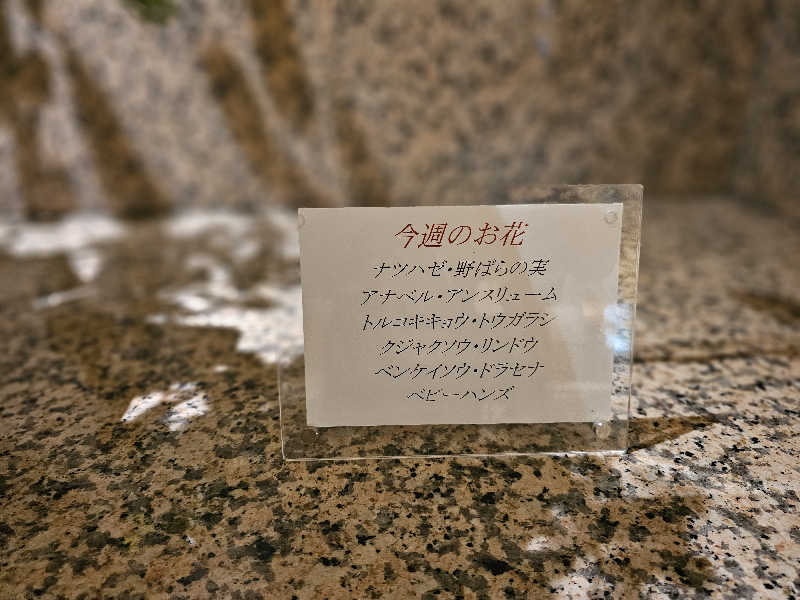 今週のお花
ナツハゼ・野ばらの実
アナベル・アンスリューム
トルコキキョウ・トウガラシ
クジャクソウ・リンドウ
ベンケイソウ・ドラセナ
ベビーハンズ